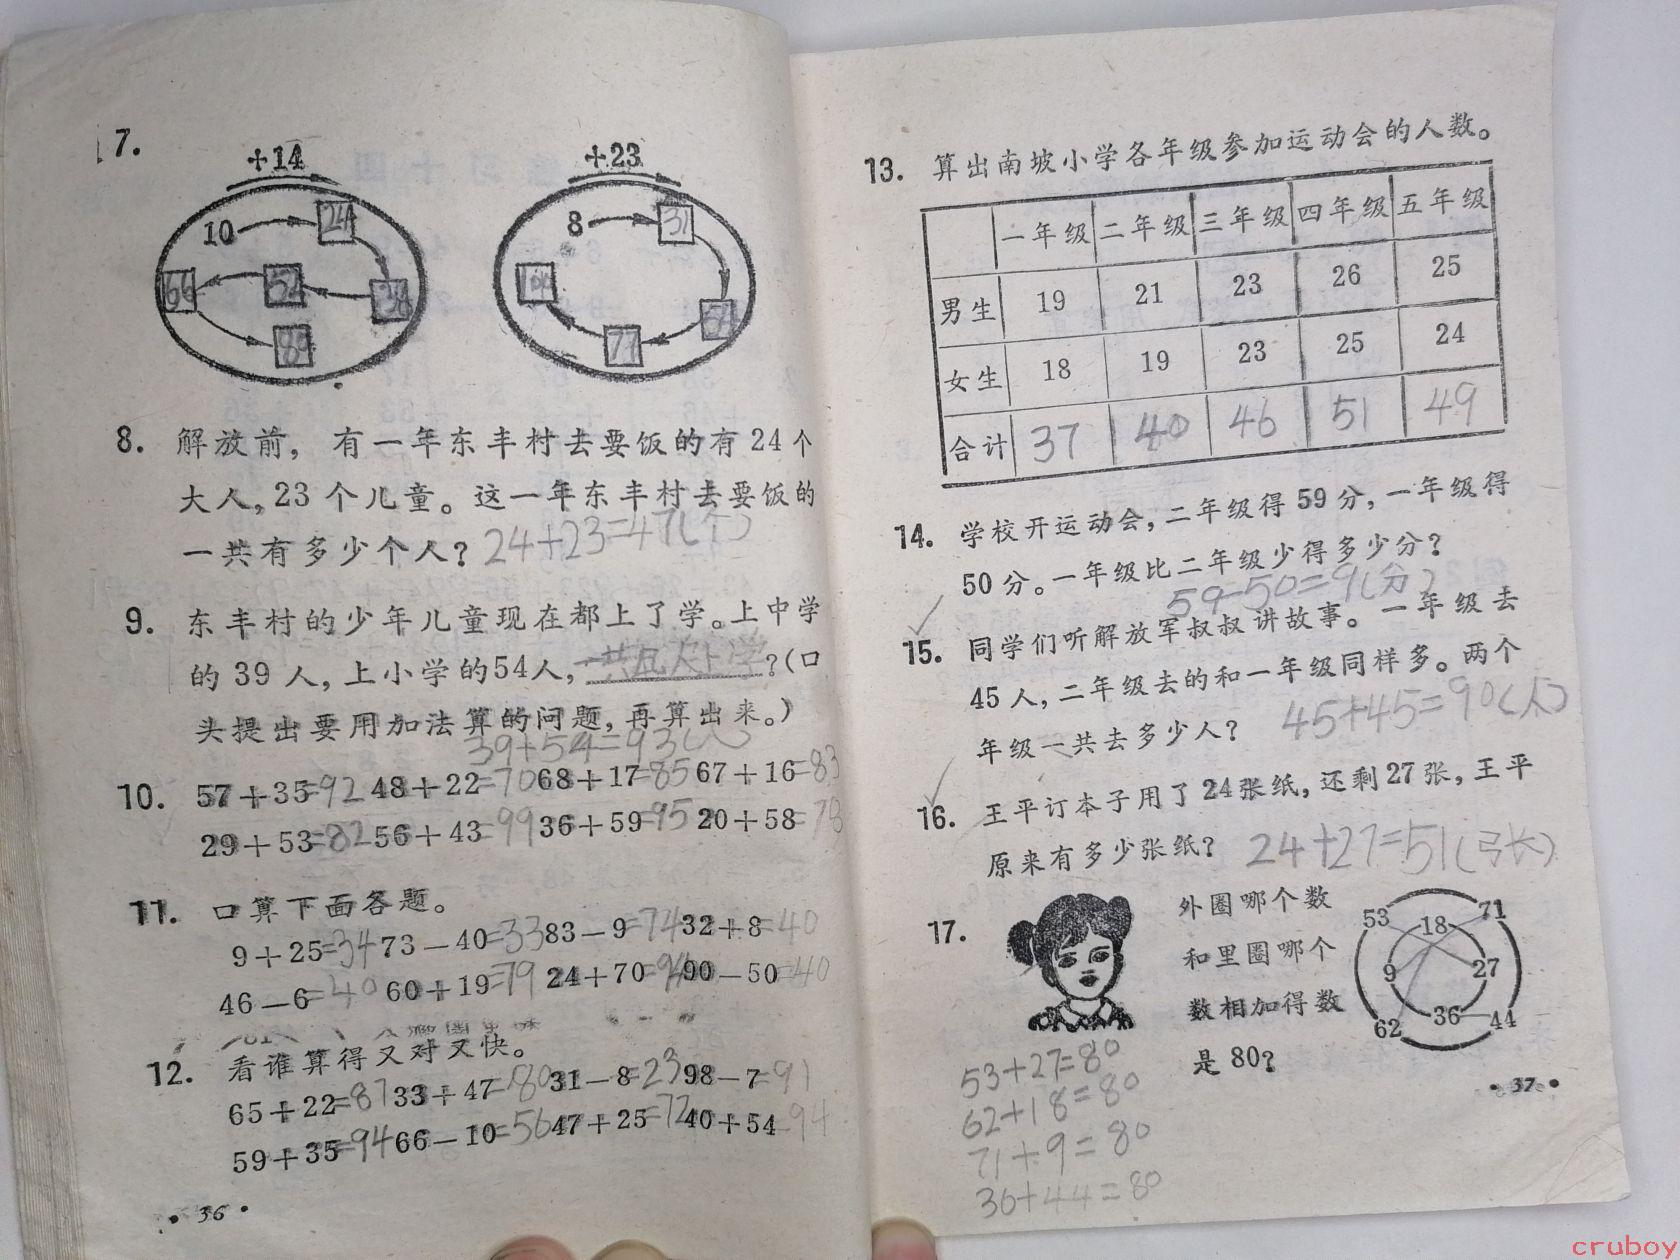 7.
+14
10 24
66 52 38
+23
8 31
54
77
8. 解放前, 有一年东丰村去要饭的有24个
大人,23个儿童。这一年东丰村去要饭的
一共有多少个人? 24+23=47(个)
9. 东丰村的少年儿童现在都上了学。上中学
的39人,上小学的54人, ?(口
头提出要用加法算的问题,再算出来。)
39+54=93(人)
10. 57+35=92 48+22=70 68+17=85 67+16=83
29+53=82 56+43=99 36+59=95 20+58=78
11. 口算下面各题。
9+25=34 73-40=33 83-9=74 32+8=40
46-6=40 60+19=79 24+70=94 90-50=40
12. 看谁算得又对又快。
65+22=87 33+47=80 31-8=23 98-7=91
59+35=94 66-10=56 47+25=72 40+54=94
• 36 •
13. 算出南坡小学各年级参加运动会的人数。
一年级 二年级 三年级 四年级 五年级
男生 19 21 23 26 25
女生 18 19 23 25 24
合计 37 40 46 51 49
14. 学校开运动会,二年级得59分,一年级得
50分。一年级比二年级少得多少分?
59-50=9(分)
15. 同学们听解放军叔叔讲故事。一年级去
45人,二年级去的和一年级同样多。两个
年级一共去多少人? 45+45=90(人)
16. 王平订本子用了24张纸,还剩27张,王平
原来有多少张纸? 24+27=51(张)
17. 外圈哪个数
和里圈哪个
数相加得数
是80?
53 18 71
9 27
62 36 44
53+27=80
62+18=80
71+9=80
36+44=80
• 37 •
cruboy